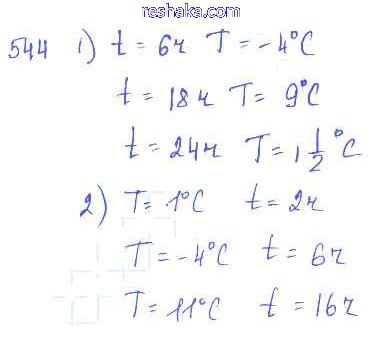 reshaka.com
544 1) t = 6ч T = -4°C
t = 18ч T = 9°C
t = 24ч T = 1 1/2 °C
2) T = 1°C t = 2ч
T = -4°C t = 6ч
T = 11°C t = 16ч